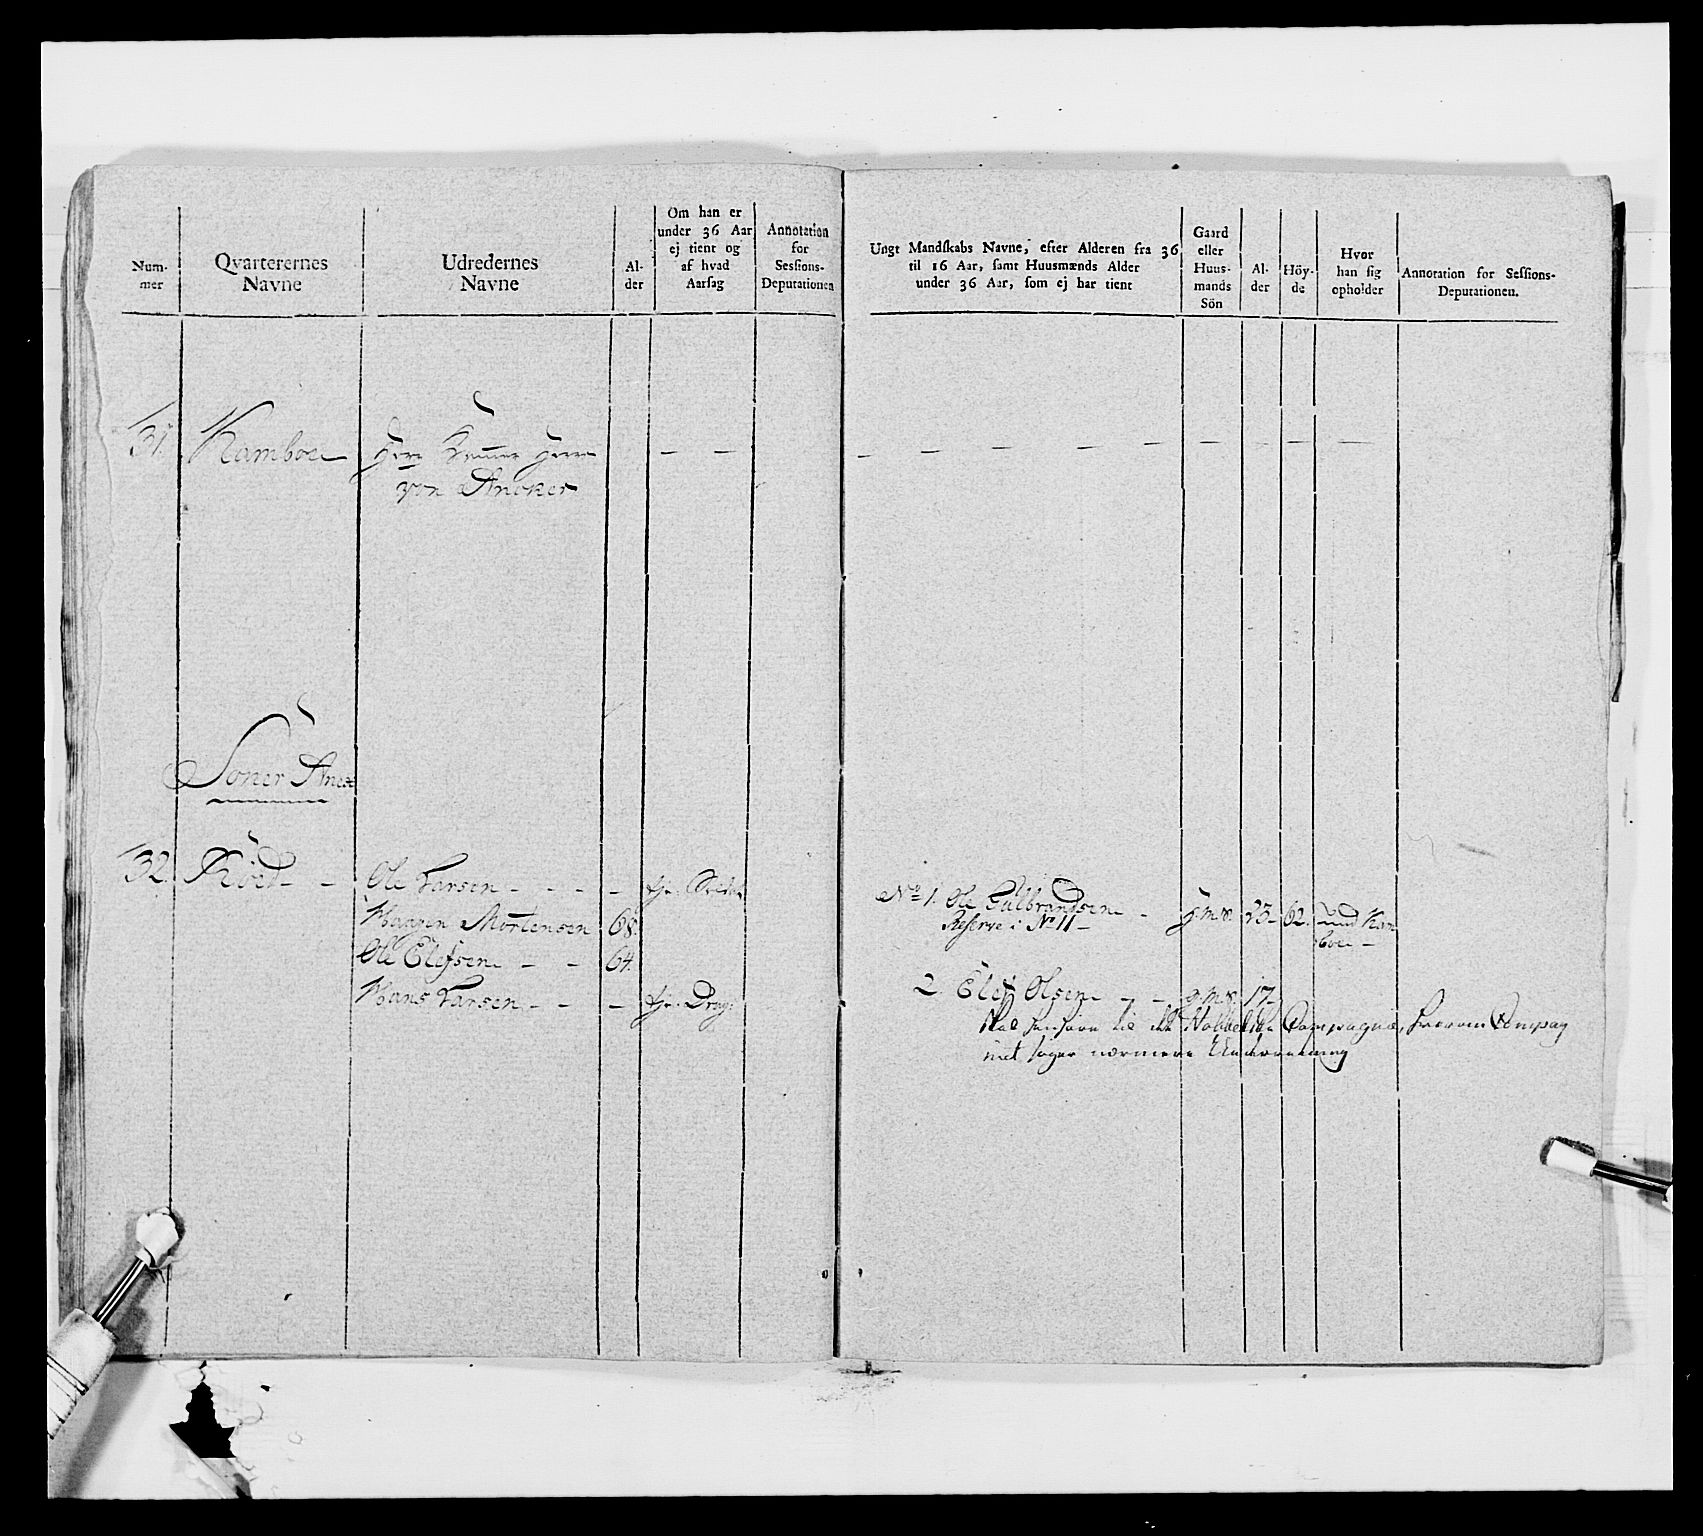 Num-
mer
Qvarterernes
Navne
Udredernes
Navne
Al-
der
Om han er
under 36 Aar
ej tient og
af hvad
Aarsag
Annotation
for
Sessions-
Deputationen
31. Kamboe Herr Kammer Herre
von Ancker
Soner Anex
32. Röed Ole Larsen tje: Soldat
Haagen Mortensen 68.
Ole Elefsen 64.
Hans Larsen tje: Drag:
Ungt Mandskabs Navne, efter Alderen fra 36
til 16 Aar, samt Huusmænds Alder
under 36 Aar, som ej har tient
Gaard
eller
Huus-
mands
Sön
Al-
der
Höy-
de
Hvor
han sig
opholder
Annotation for Sessions-
Deputationen.
No 1. Ole Gulbrandsen g.m.s. 23 62. ved Kam
boe
Reserve i No 11
2 Elef Olsen g.m.s. 17
skal henføre til det Compagnie,
nærmere Underretning